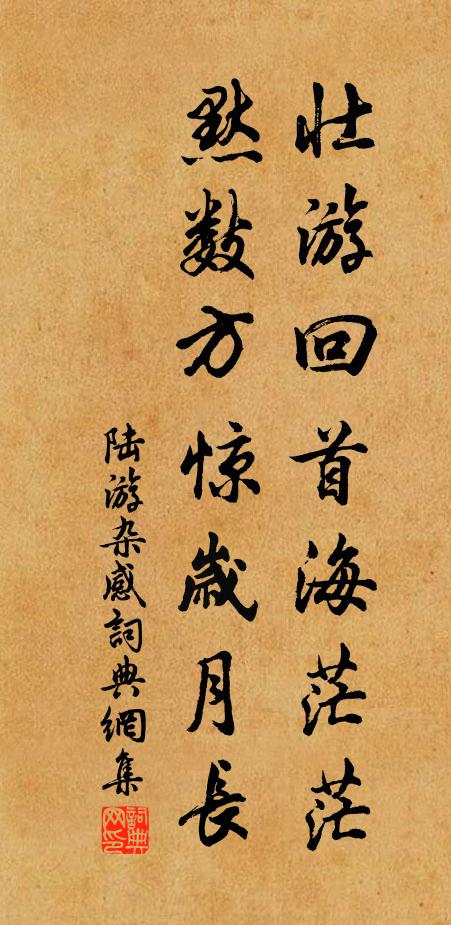 壮游回首海茫茫
默数方惊歲月长
陆游杂感詞典網集
詞典网印